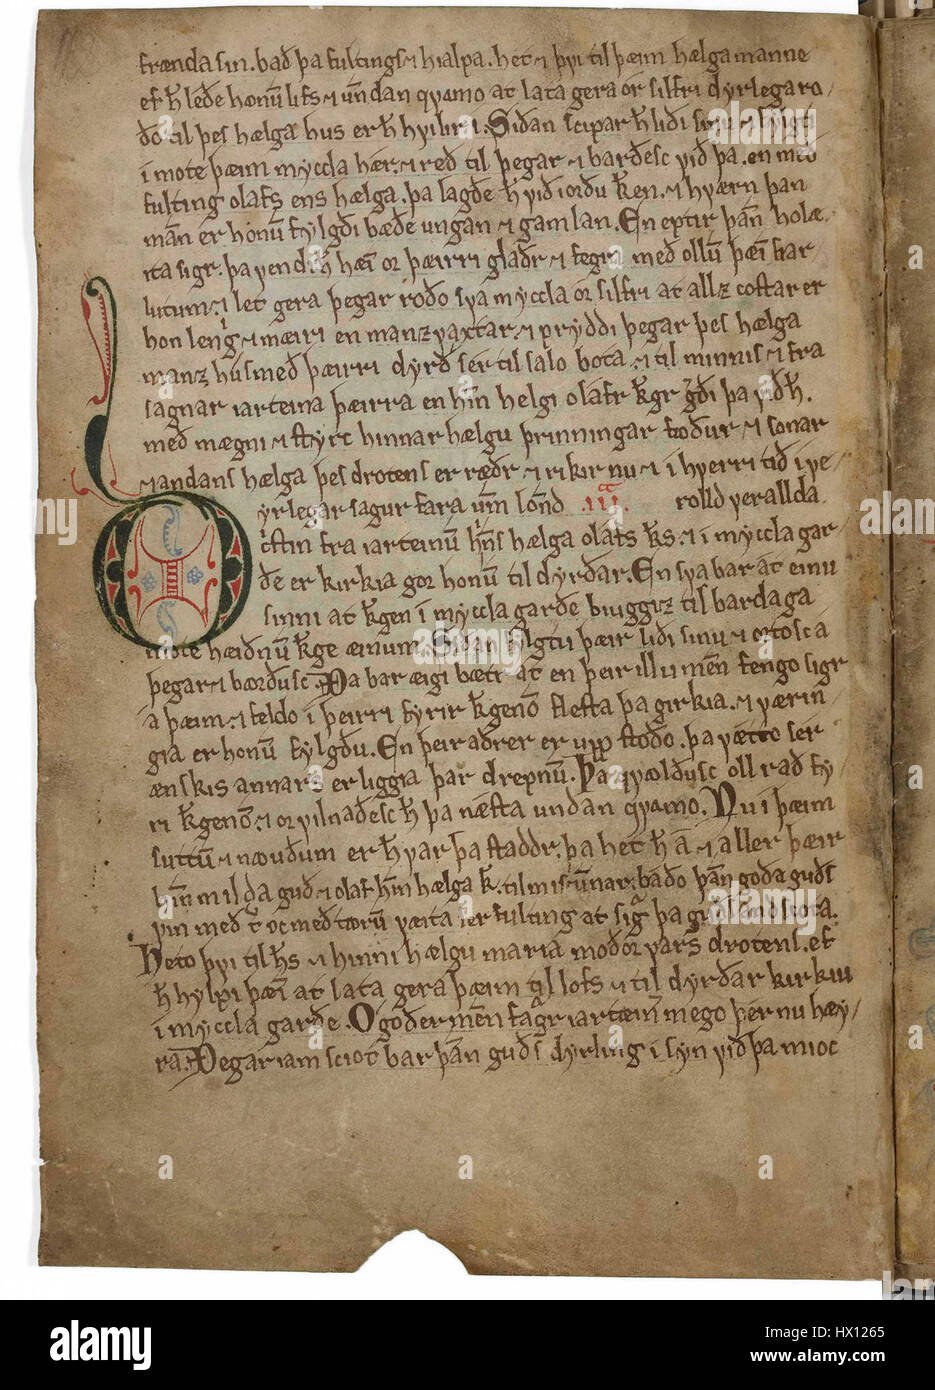 frænda sin. bað þa fultings ⁊ hialpa. het ⁊ þvi til þæim hælga manne
ef h̅ leðe honū lifs ⁊ undan qvamo at lata gera or silfri dyrlega ro
ðo til þes hælga hus er h̅ hvilir i. Siðan scipar h̅ liði sinu ⁊ fylgt
i mote þæim myccla hær. ⁊ reð til þegar ⁊ barðesc við þa. en með
fulting olafs ens hælga. þa lagðe h̅ við iorðu k̅gen. ⁊ hværn þan
mān er honū fylgði bæðe ungan ⁊ gamlan. En eptir þān holæ
ita sigr. þa vendi h̅ hæī or þæirri glaðr ⁊ fegīn með ollū þæī fār
lutum. ⁊ let gera þegar roðo sva myccla or silfri at allz costar er
hon lengri ⁊ mæiri en manz vaxtar. ⁊ pryddi þegar þes hælga
manz hus með þæirri dyrð ser til salo bota. ⁊ til minnis ⁊ fra
sagnar iarteina þæirra en hin helgi olafr k̅gr gerði þa við h̅.
með mægni ⁊ styrc hinnar hælgu þrinningar foður ⁊ sonar
⁊ andans hælga þes drotens er ræðr ⁊ rikir nu ⁊ i hverri tið i ve
yrlegar sagur fara um lond .iii. rolld verallda.
ostin fra iarteinū hins hælga olafs k̅s. ⁊ i myccla gar
ðe er kirkia gor honū til dyrðar. En sva bar at einu
sinni at k̅gen i myccla garðe biuggiz til bardaga
mote hæiðnū k̅ge æinum. Siðan fylgtu þæir liði sinu ⁊ ortosc a
þegar ⁊ bærðusc. Þa bar æigi bætr at en þeir illu mēn fengo sigr
a þæim. ⁊ feldo i þeirri fyrir k̅genō flesta þa girkia. ⁊ værin
gia er honū fylgðu. En þeir aðrer er upp stoðo. þa vætto ser
ænskis annars er liggia þar drepnū. Þa qvolðusc oll rað fy
ri k̅genō. ⁊ or vilnaðesc h̅ þa næsta undan qvamo. Nu i þæim
suttū ⁊ nouðum er h̅ var þa staddr. þa het h̅ a ⁊ aller þæir
hīn milda guð ⁊ olaf hīn hælga k̅. til miscunnar. baðo þān goða guðs
vin með tr oc með tarū væita ser fulting at sigra þa guðs ondscota.
Heto þvi til h̅s ⁊ hinni hælgu maria moðor vars drotens. ef
h̅ hylpi þæī at lata gera þæim til lofs ⁊ til dyrðar kirkiu
i myccla garðe. O goðer mēn fagr iartæin mego þer nu hæy
ra. Þegar iam sciot bar þān guðs dyrling i syn við þa mioc
alamy
HX1265
www.alamy.com